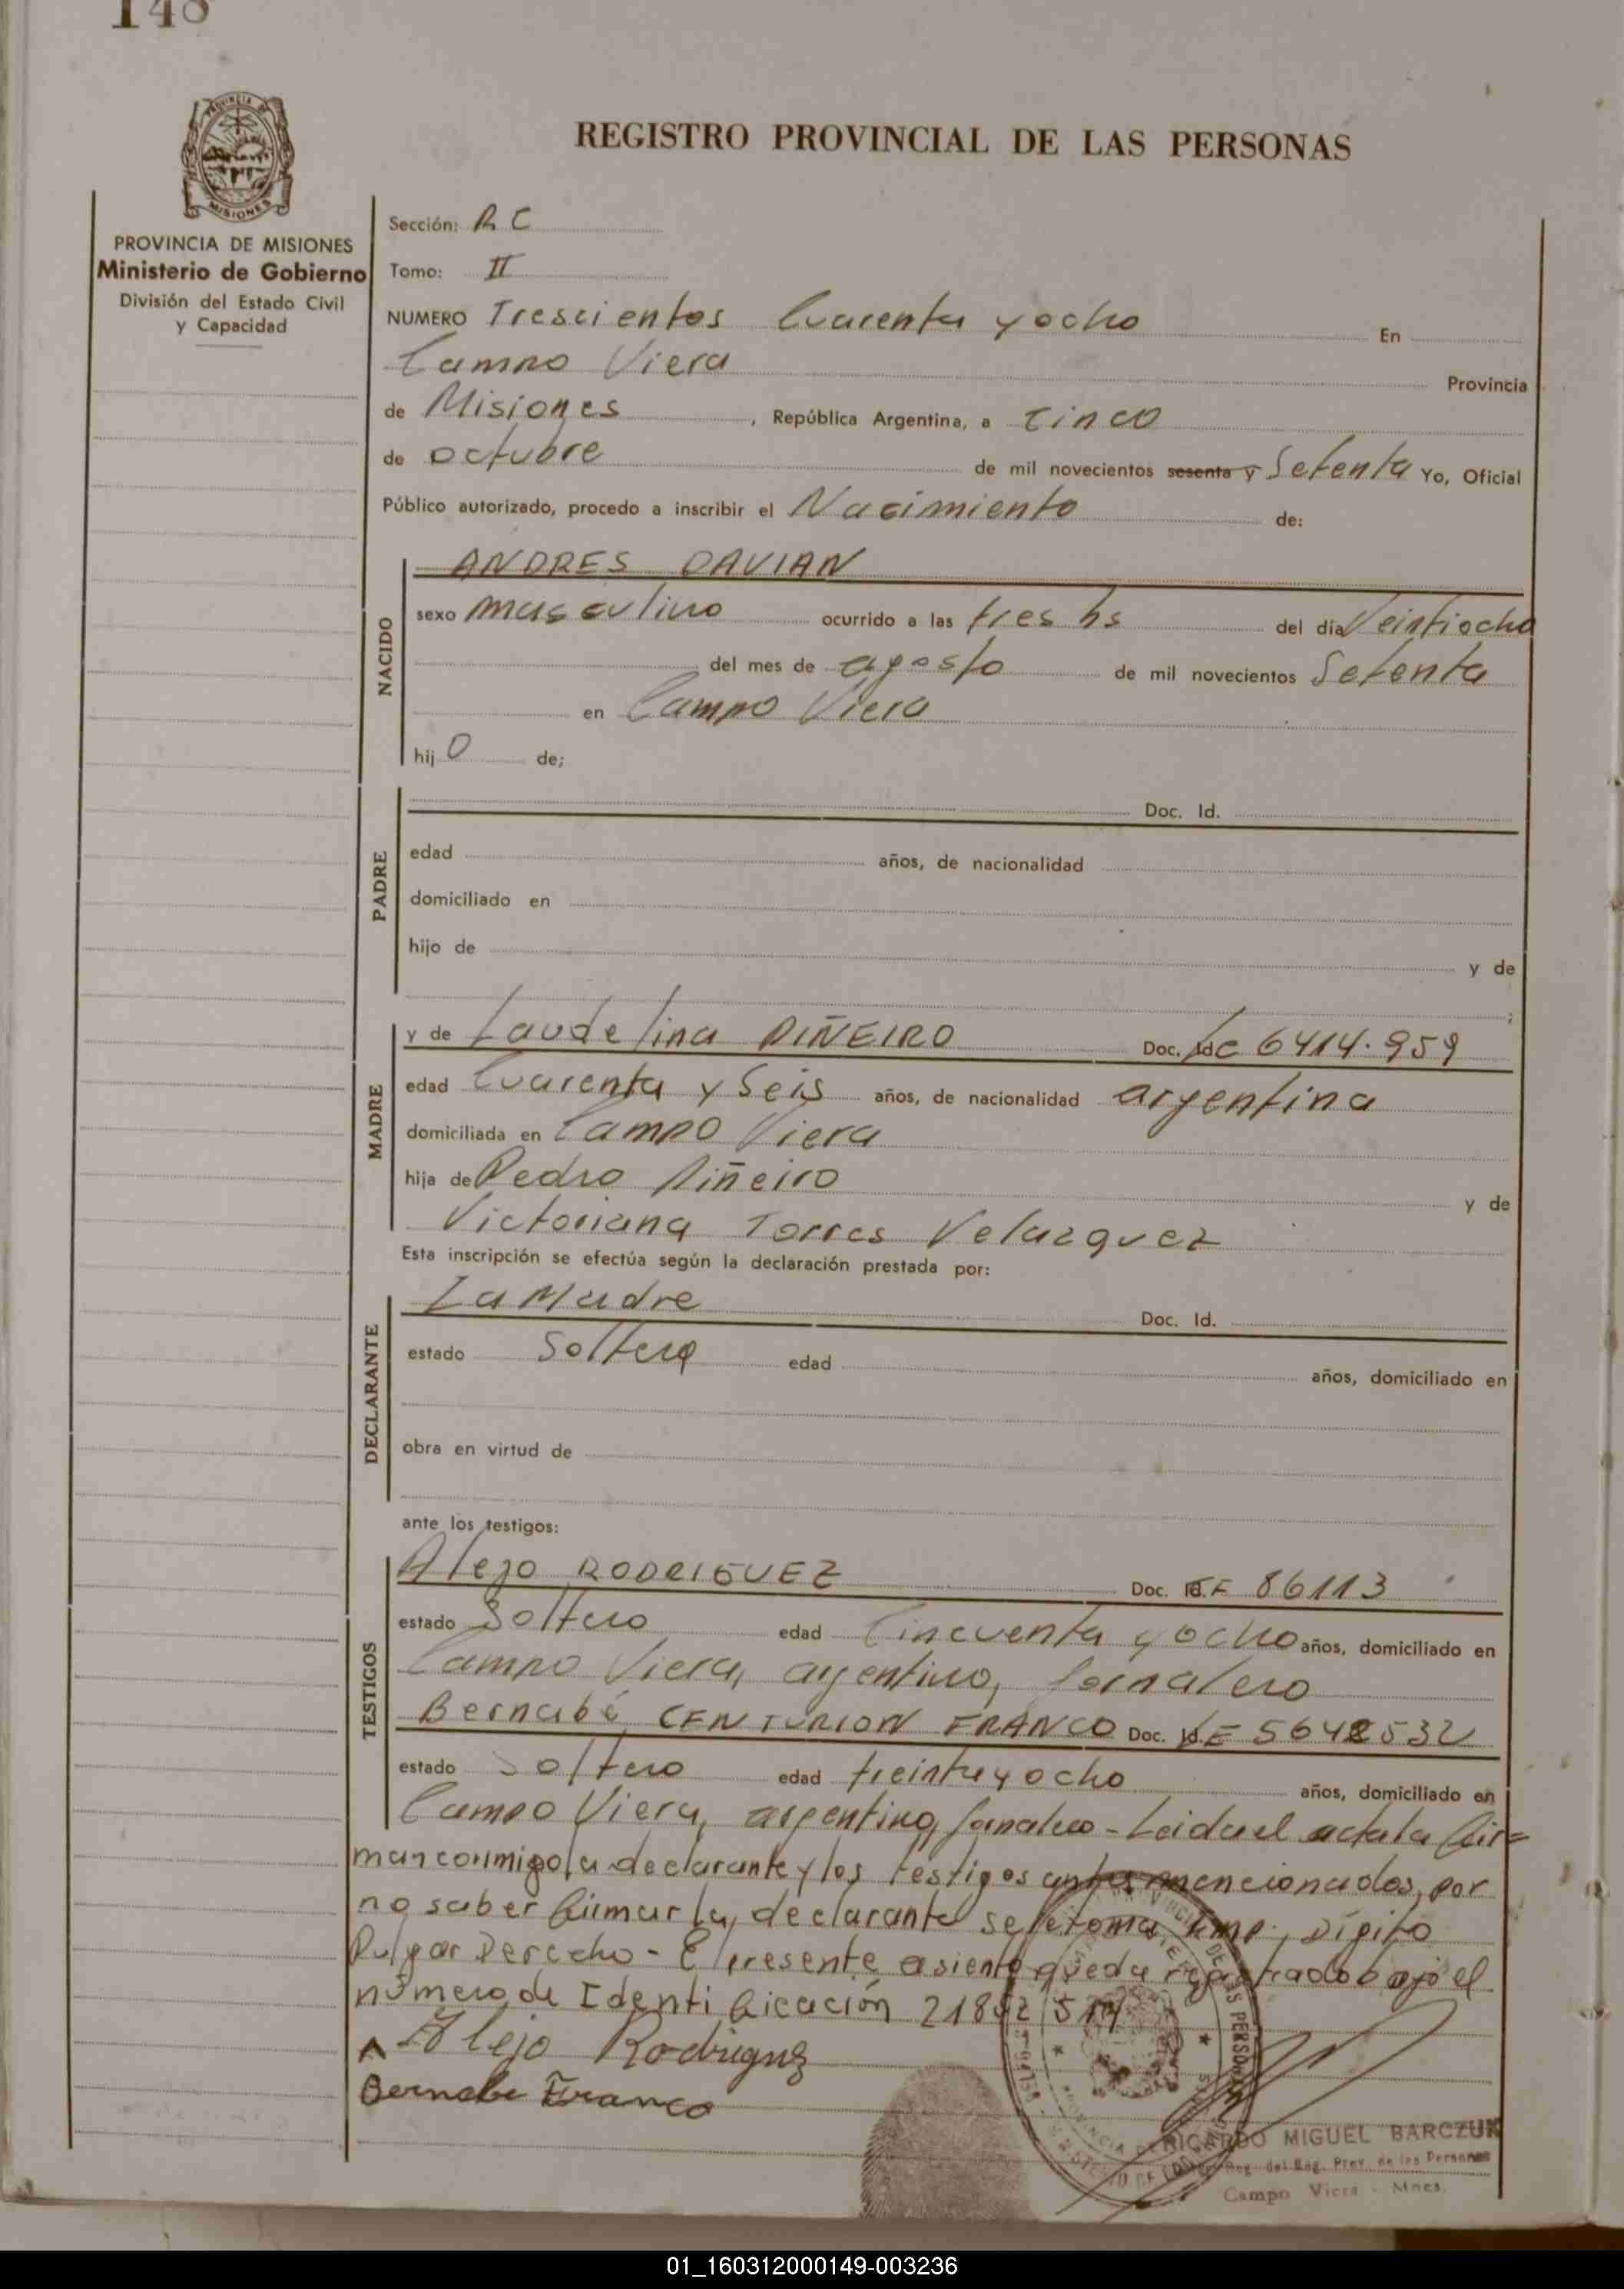 148
REGISTRO PROVINCIAL DE LAS PERSONAS
PROVINCIA DE MISIONES
Ministerio de Gobierno
División del Estado Civil
y Capacidad
Sección: R C
Tomo: II
NUMERO Trescientos Cuarenta y ocho En
Campo Viera Provincia
de Misiones, República Argentina, a cinco
de octubre de mil novecientos sesenta y Setenta Yo, Oficial
Público autorizado, procedo a inscribir el Nacimiento de:
NACIDO
ANDRES DAVIAN
sexo masculino ocurrido a las tres hs del día Veintiocho
del mes de agosto de mil novecientos Setenta
en Campo Viera
hijo de;
PADRE
Doc. Id.
edad años, de nacionalidad
domiciliado en
hijo de y de
;
MADRE
y de Laudelina PIÑEIRO Doc. Id C 6414.959
edad Cuarenta y Seis años, de nacionalidad argentina
domiciliada en Campo Viera
hija de Pedro Piñeiro y de
Victoriana Torres Velazquez
Esta inscripción se efectúa según la declaración prestada por:
DECLARANTE
La Madre Doc. Id.
estado Soltera edad años, domiciliado en
obra en virtud de
ante los testigos:
TESTIGOS
Alejo RODRIGUEZ Doc. Id. E 86113
estado Soltero edad Cincuenta y ocho años, domiciliado en
Campo Viera, argentino, Jornalero
Bernabé CENTURION FRANCO Doc. Id. E 5648532
estado Soltero edad treinta y ocho años, domiciliado en
Campo Viera, argentino, Jornalero - Leida el acta la fir=
man conmigo la declarante y los testigos antes mencionados, por
no saber firmar la declarante se le toma imp. Digito
Pulgar Derecho - El presente asiento queda registrado bajo el
número de Identificación 21892
Alejo Rodriguez
Bernabe Franco
RICARDO MIGUEL BARCZUK
del Reg. Prov. de las Personas
Campo Viera - Mnes.
01_160312000149-003236